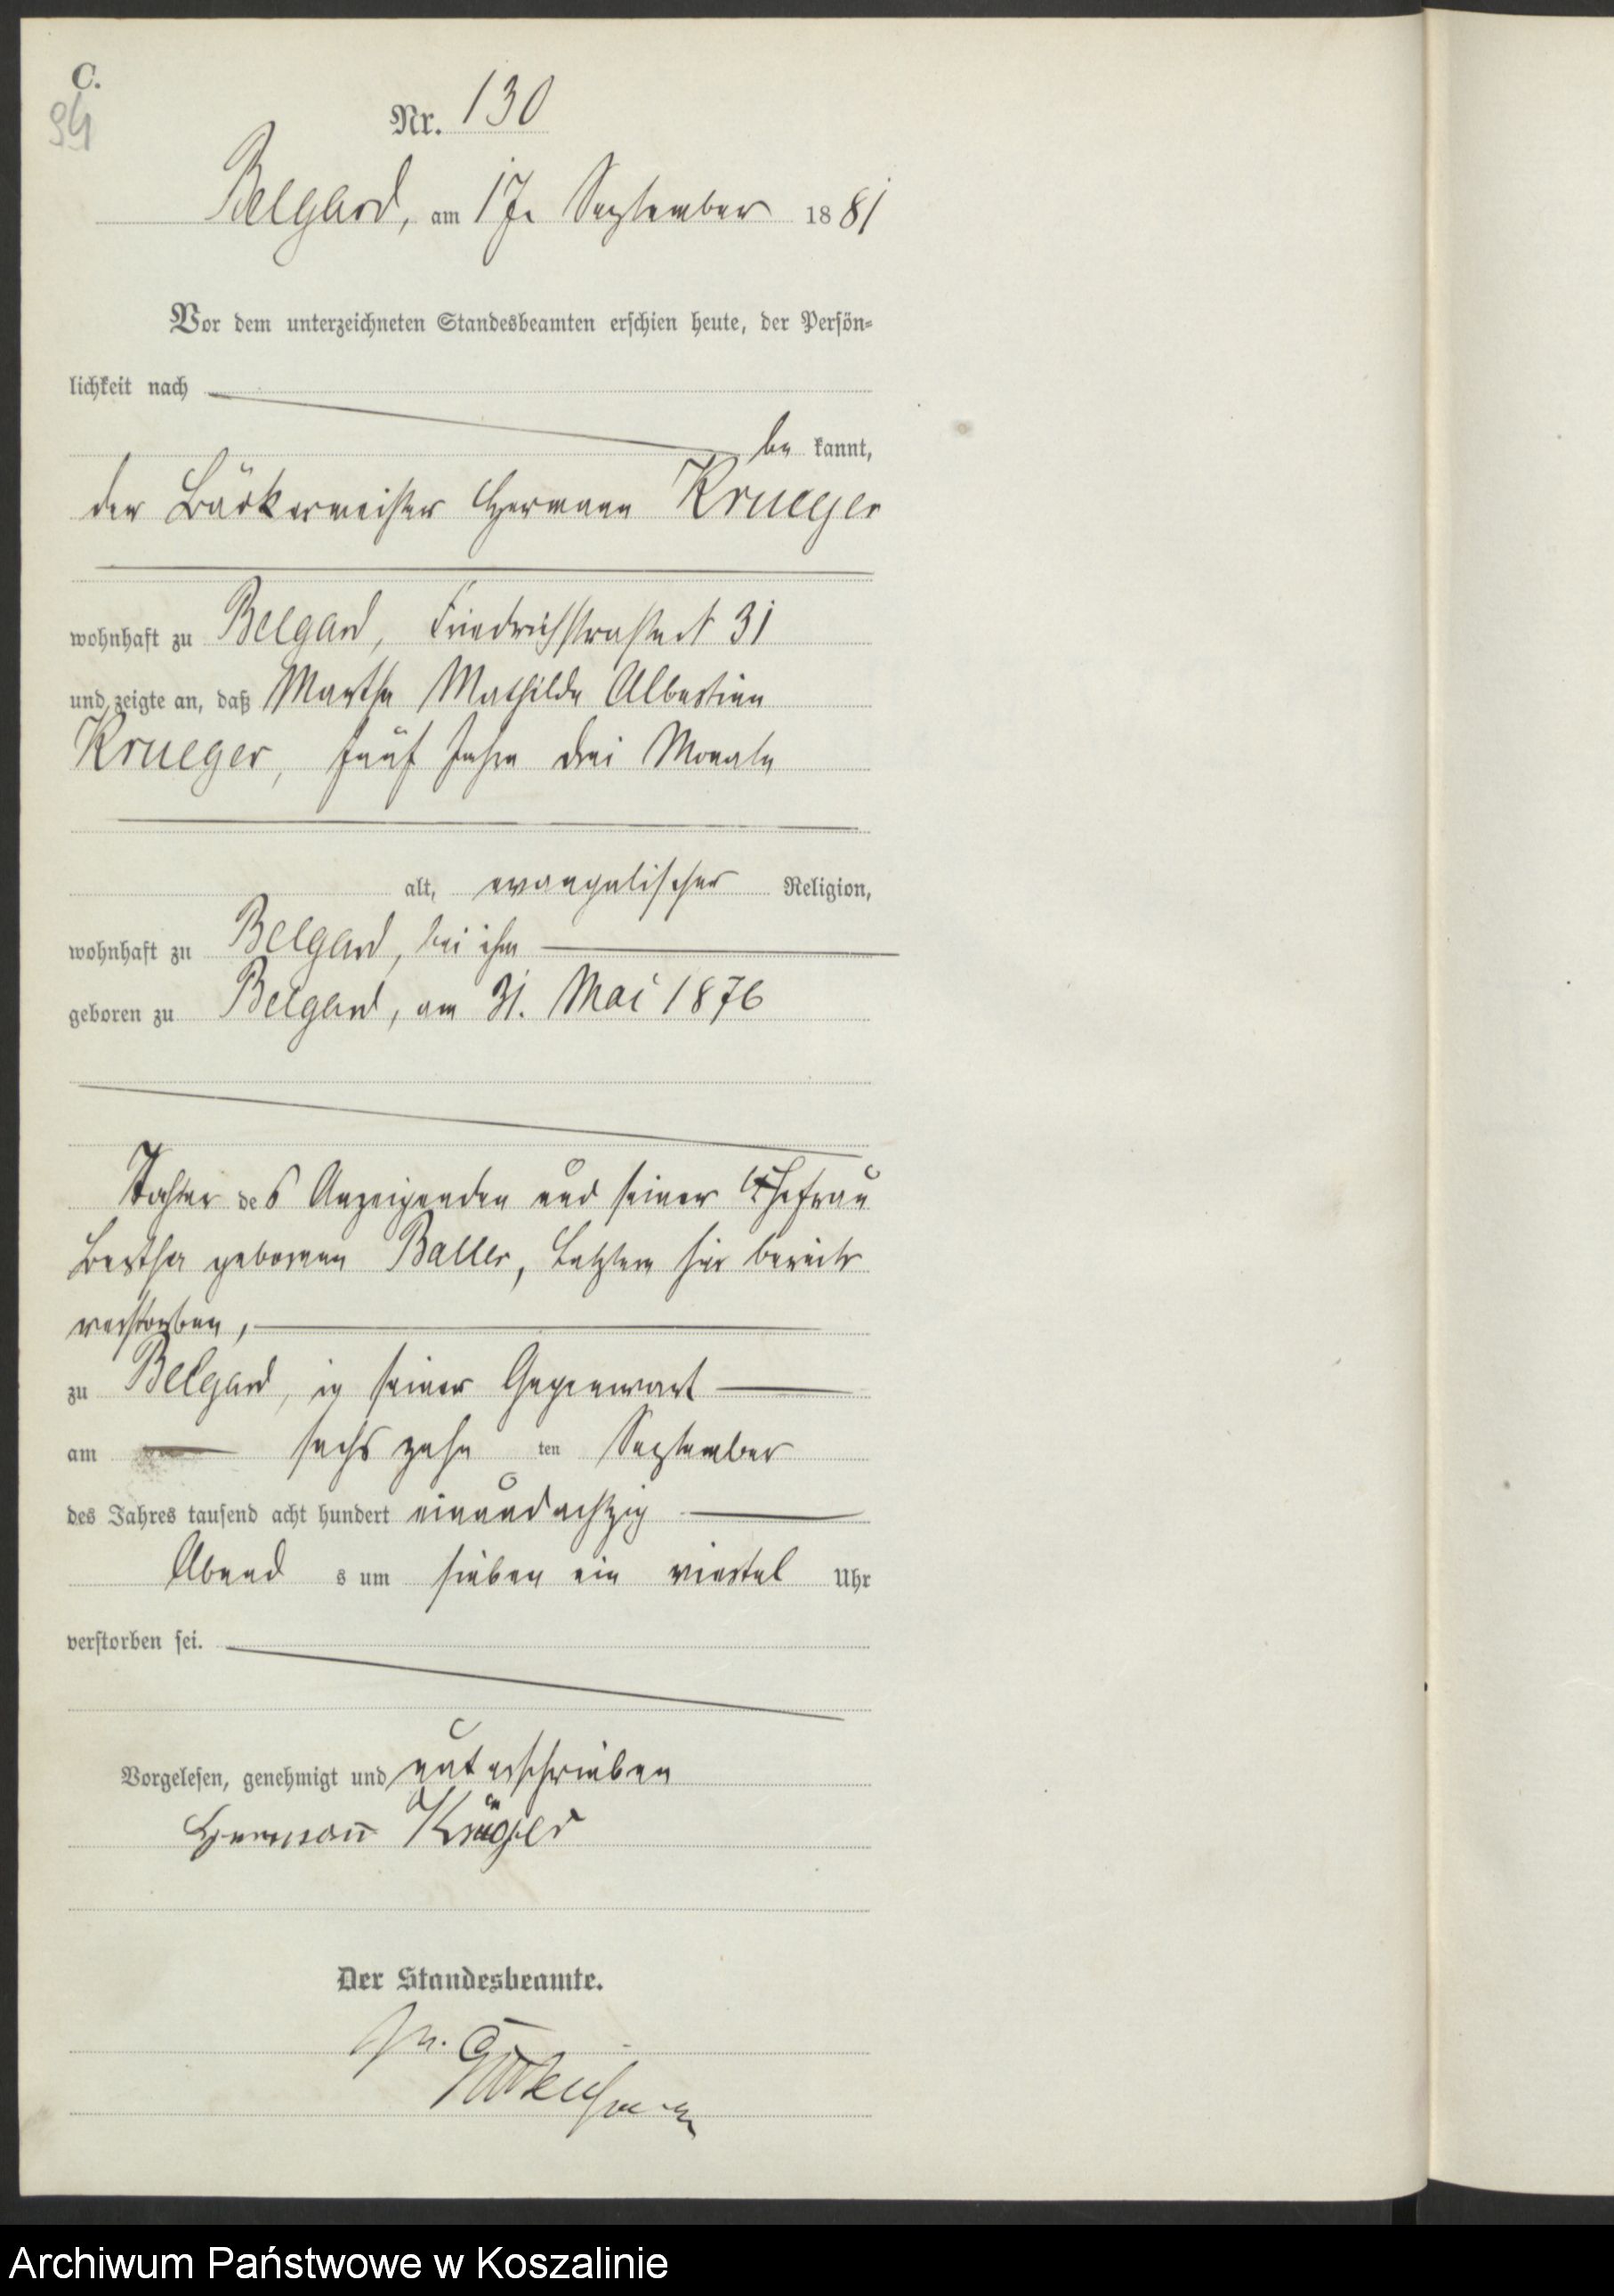 C.
94
Nr. 130
Belgard, am 17. September 1881
Vor dem unterzeichneten Standesbeamten erschien heute, der Persön-
lichkeit nach
be kannt,
der Bäckermeister Hermann Krueger
wohnhaft zu Belgard, Friedrichstraße 31
und zeigte an, daß Martha Mathilde Albertine
Krueger, fünf Jahre drei Monate
alt, evangelischer Religion,
wohnhaft zu Belgard, bei ihm
geboren zu Belgard, am 31. Mai 1876
Tochter des Anzeigenden und seiner Ehefrau
Bertha geborenen Baller, Letztere hier bereits
verstorben,
zu Belgard, in seiner Gegenwart
am sechs zehn ten September
des Jahres tausend acht hundert einundachtzig
Abend s um sieben ein viertel Uhr
verstorben sei.
Vorgelesen, genehmigt und unterschrieben
Hermann Krüger
Der Standesbeamte.
Archiwum Państwowe w Koszalinie